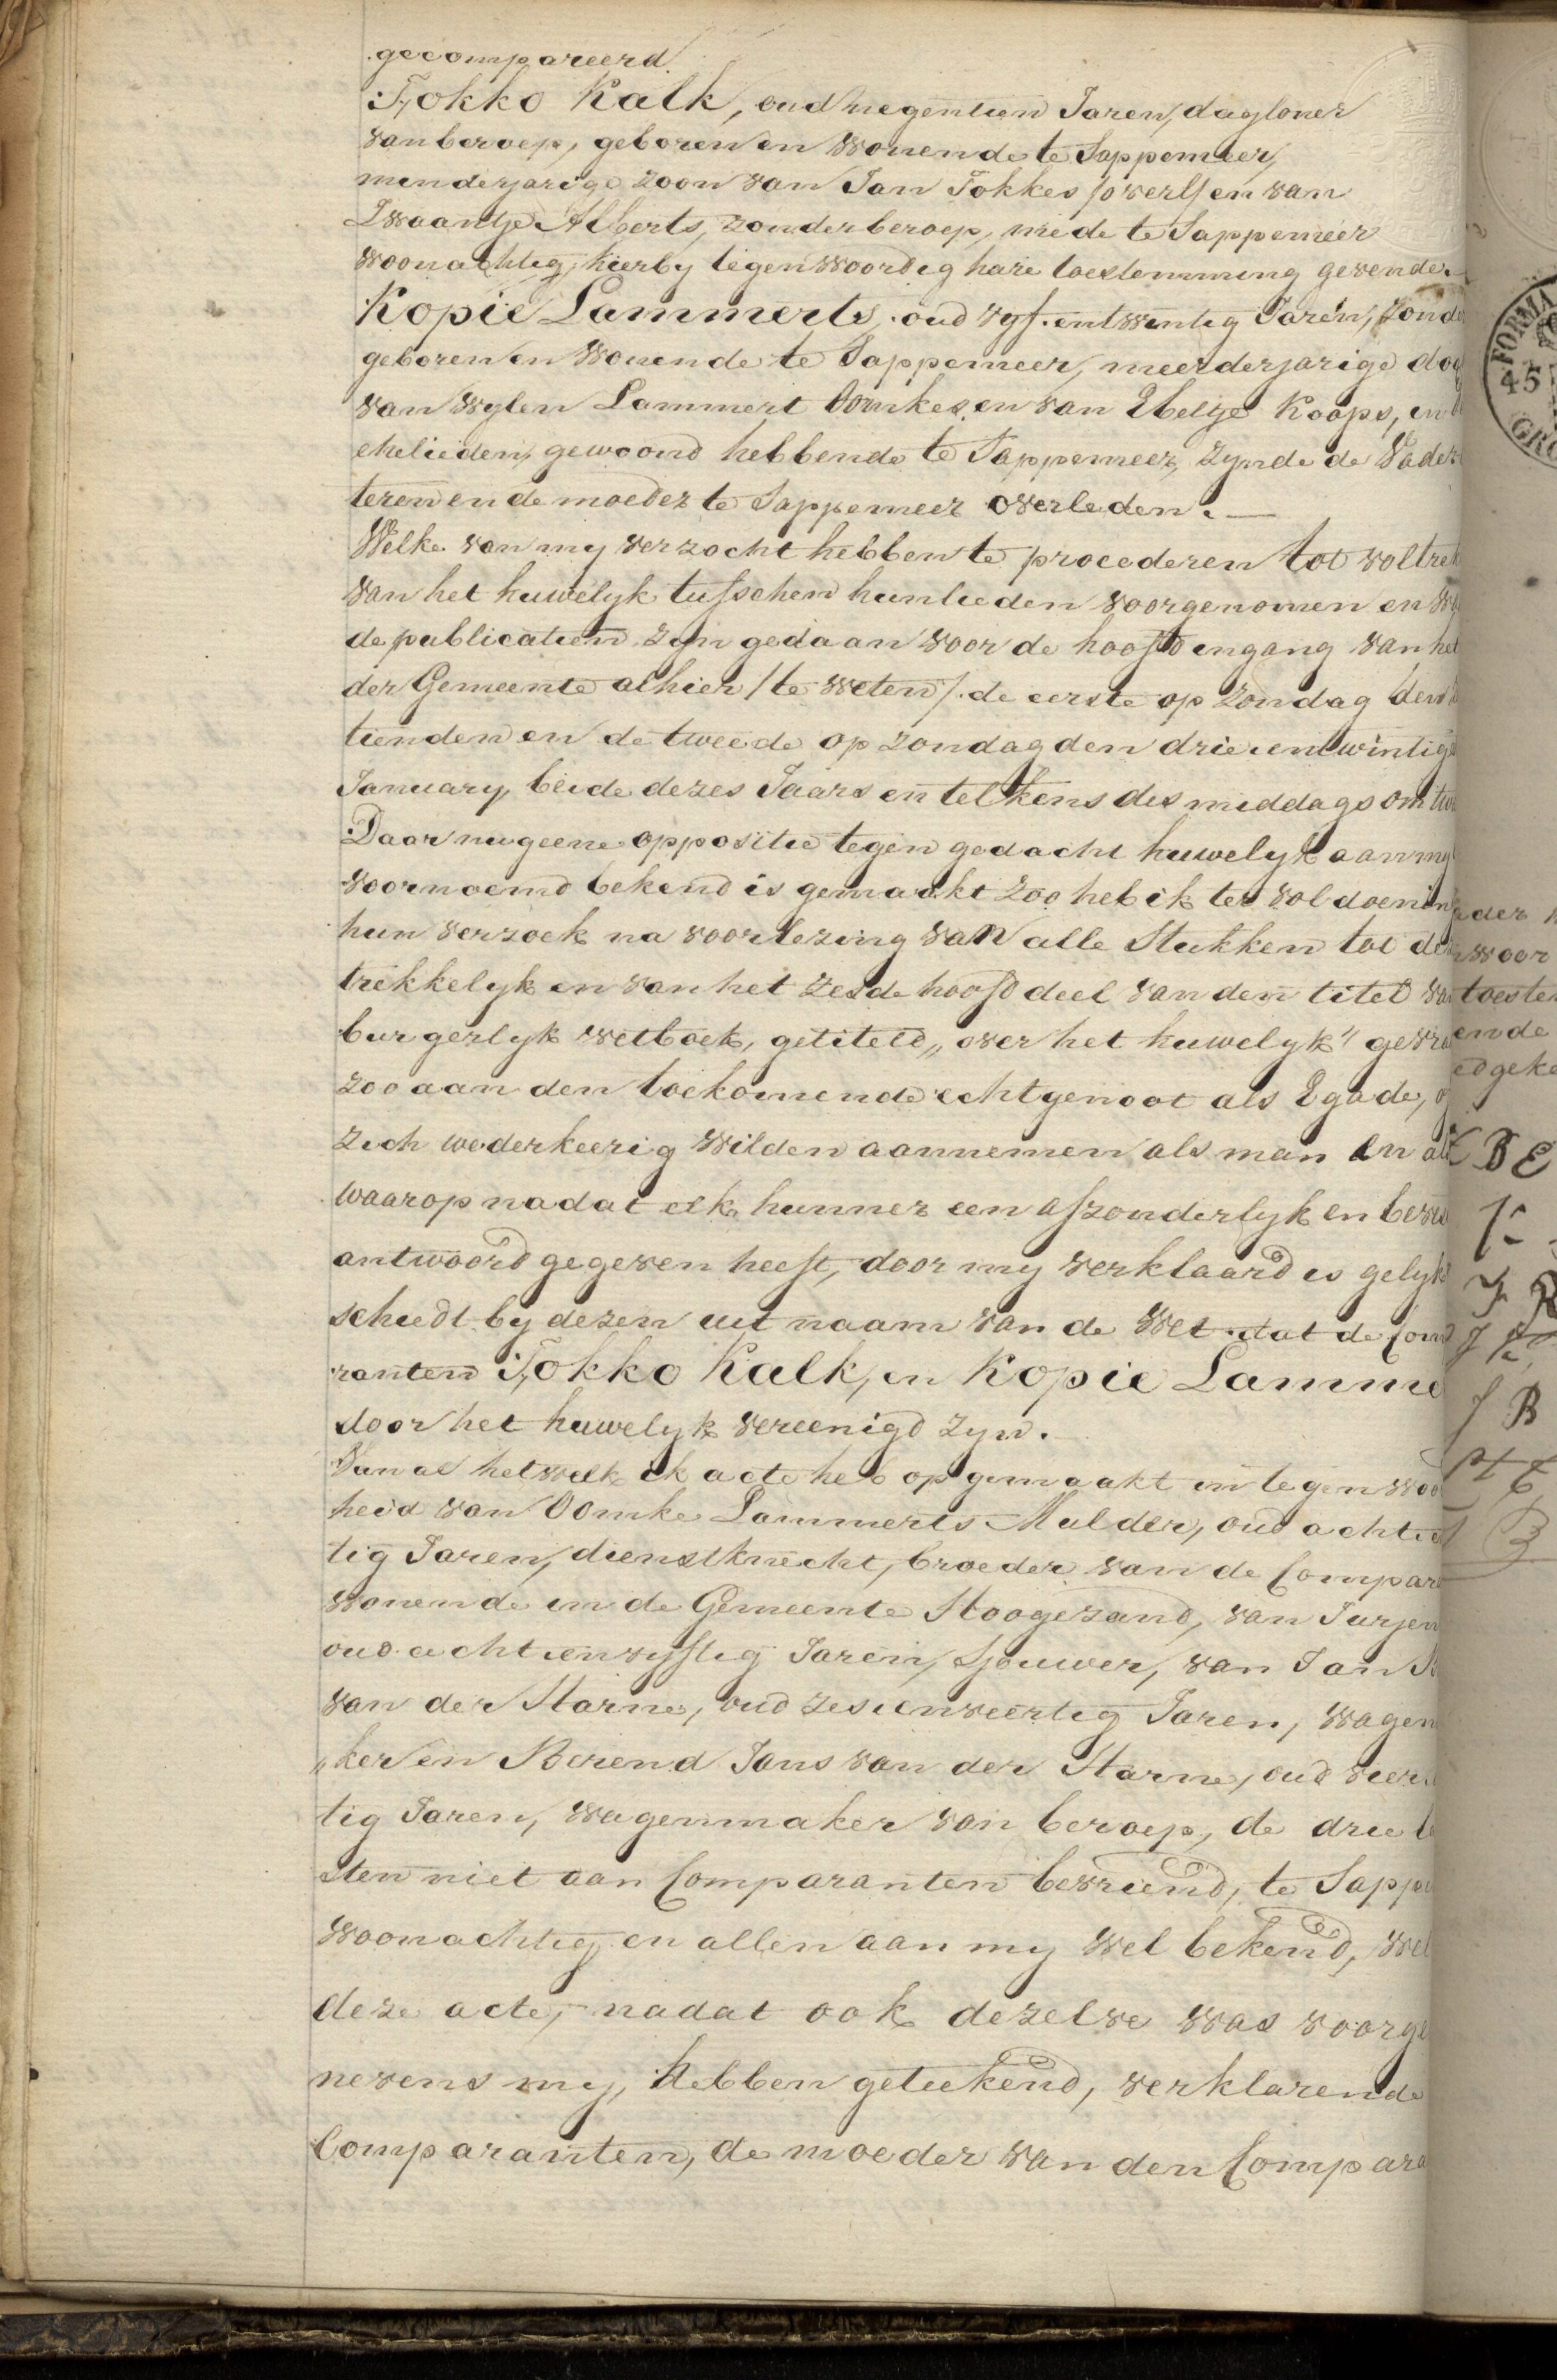 gecompareerd
Fokko Kalk, oud negentien Jaren, dagloner
van beroep, geboren en wonende te Sappemeer,
minderjarige zoon van Jan Fokkes /overl/ en van
Zwaantje Alberts, zonder beroep, mede te Sappemeer
woonachtig, hierby tegenwoordig hare toestemming gevende.
Kopie Lammerts, oud vyf entwintig Jaren, zonde
geboren en wonende te Sappemeer, meerderjarige doc
van wylen Lammert Oomkes en van Ebelje Koops, in
ehelieden, gewoond hebbende te Sappemeer, zynde de Vader
teren en de moeder te Sappemeer overleden. —
Welke van my verzocht hebben te procederen tot voltrek
van het huwelyk tusschen hunlieden voorgenomen en w
de publicatien zyn gedaan voor de hoofd engang van het
der Gemeente alhier /te weten/ de eerste op zondag den
tienden en de tweede op zondag den drieentwintig
January, beide dezes Jaars en telkens des middags om twa
Daar nu geene oppositie tegen gedacht huwelyk aan my
voornoemd bekend is gemaakt zoo heb ik ter voldoening
hun verzoek na voorlezing van alle Stukken tot de
trekkelyk en van het zesde hoofddeel van den titel va
burgerlyk wetboek, getiteld „over het huwelyk" gevra
zoo aan den toekomende echtgenoot als Egade, o
zich wederkeerig wilden aannemen als man en al
waarop nadat elk hunner een afzonderlyk en beves
antwoord gegeven heeft, door my verklaard is gelyk
schiedt by dezen uit naam van de wet dat de Com
ranten Fokko Kalk, en Kopie Lamme
door het huwelyk vereenigd zyn.
Van al hetwelk ik acte heb opgemaakt in tegenwoo
heid van Oomke Lammerts Mulder, oud achten
tig Jaren, dienstknecht, broeder van de Compar
wonende in de Gemeente Hoogezand, van Jurjen
oud achtenvyftig Jaren, Sjouwer, van Jan
van der Starne, oud zesenveertig Jaren, wagen
„ker en Berend Jans van der Starne, oud veer
tig Jaren, wagenmaker van beroep, de drie l
sten niet aan Comparanten bevriend, te Sappe
woonachtig en allen aan my wel bekend, wel
deze acte, nadat ook dezelve was voorge
nevens my, hebben geteekend, verklarende
Comparanten, de moeder van den Compara
FORMA
45
GRO
der
woor
toeste
ende
edgeke